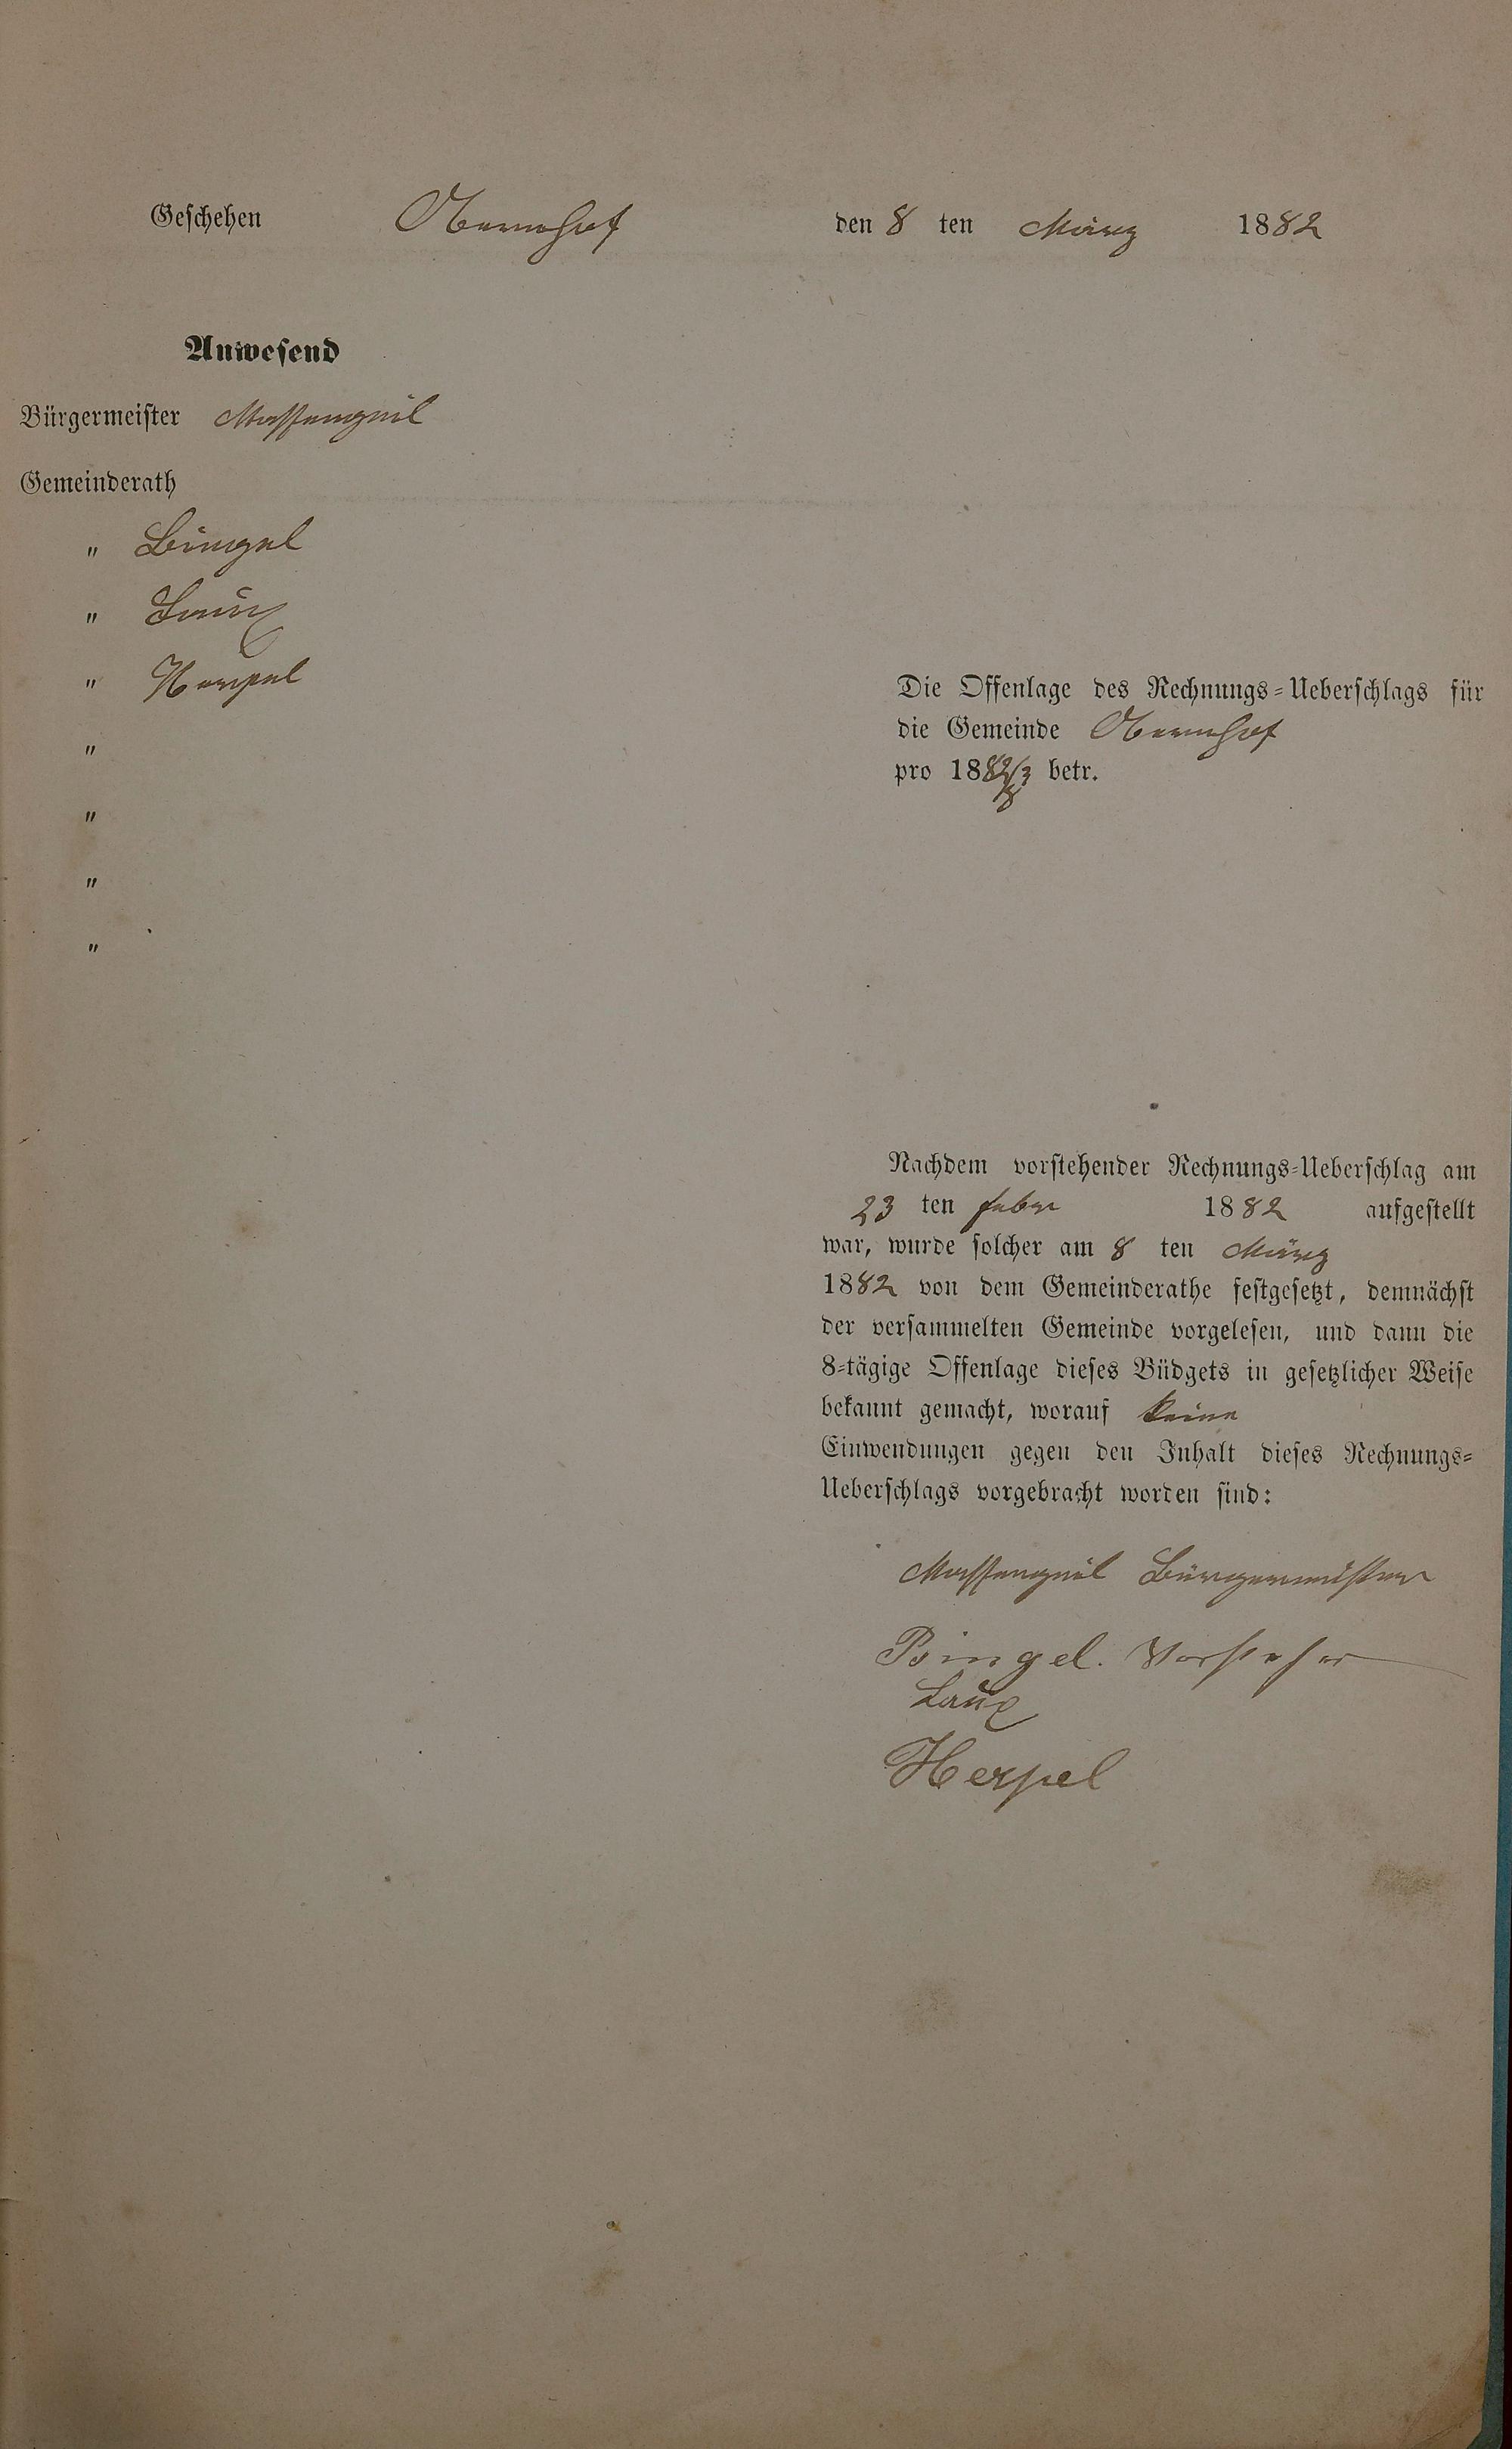 Geschehen Obernhof den 8 ten März 1882
Anwesend
Bürgermeister Massengeil
Gemeinderath
" Bingel
" Laux
" Herpel
"
"
"
"
Die Offenlage des Rechnungs-Ueberschlags für
die Gemeinde Obernhof
pro 1882/3 betr.
Nachdem vorstehender Rechnungs-Ueberschlag am
23 ten Febr 1882 aufgestellt
war, wurde solcher am 8 ten März
1882 von dem Gemeinderathe festgesetzt, demnächst
der versammelten Gemeinde vorgelesen, und dann die
8-tägige Offenlage dieses Büdgets in gesetzlicher Weise
bekannt gemacht, worauf keine
Einwendungen gegen den Inhalt dieses Rechnungs-
Ueberschlags vorgebracht worden sind:
Massengeil Bürgermeister
Bingel. Vorsteher
Laux
Herpel